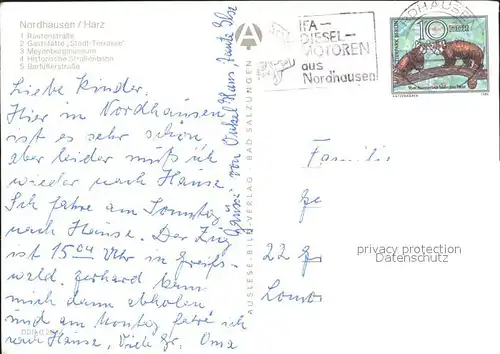 Nordhausen / Harz
1 Rautenstraße
2 Gaststätte „Stadt-Terrasse"
3 Meyenburgmuseum
4 Historische Straßenbahn
5 Barfüßerstraße
Liebe Kinder.
Hier in Nordhausen
ist es sehr schön
aber leider muß ich
wieder nach Hause
Ich fahre am Sonntag
nach Hause. Der Zug
ist 15 04 Uhr in Greifs-
wald. Gerhard kann
mich dann abholen
und am Montag fahre ich
nach Hause, Viele Gr. Oma
Grüße von Onkel Hans, Tante Else
AUSLESE-BILD-VERLAG · BAD SALZUNGEN
IFA-
DIESEL-
MOTOREN
aus
Nordhausen
10
Familie
22
privacy protection
Datenschutz